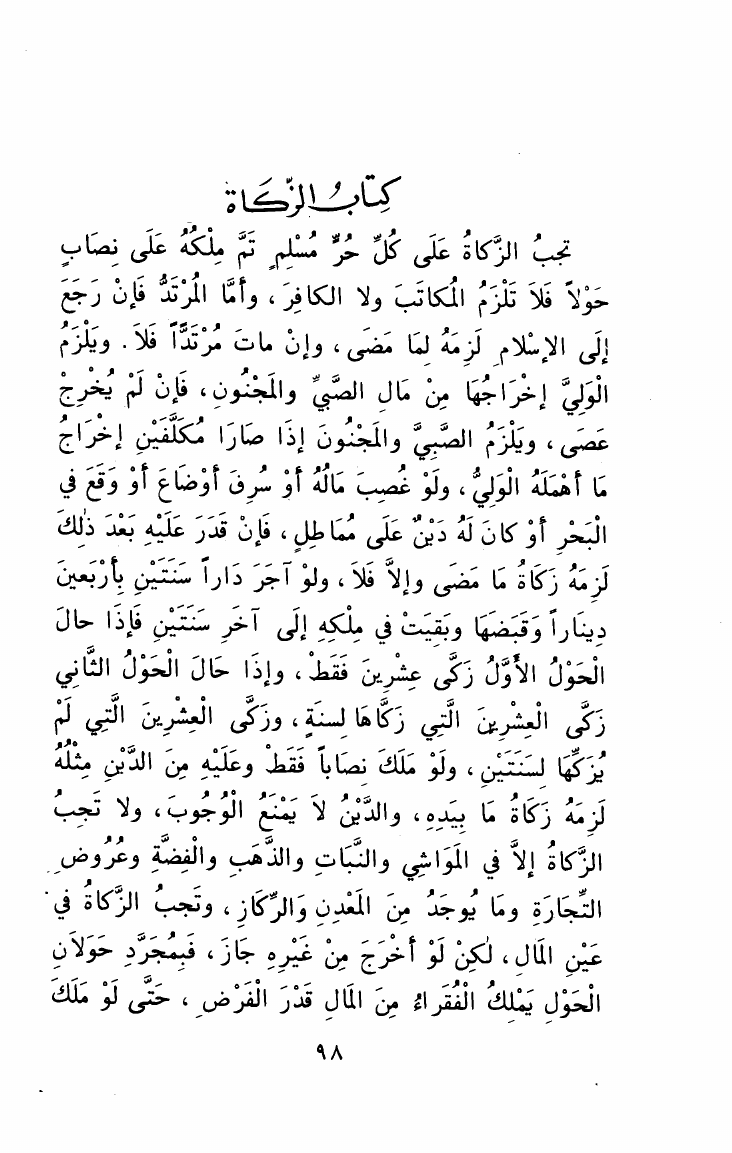 كِتَابُ الزَّكَاة
تجِبُ الزَّكاةُ عَلَى كُلِّ حُرٍّ مُسْلِمٍ تَمَّ مِلْكُهُ عَلَى نِصابٍ
حَوْلاً فَلاَ تَلْزَمُ المُكاتَبَ ولا الكافِرَ ، وأمَّا المُرْتَدُّ فَإنْ رَجَعَ
إلَى الإسْلامِ لَزِمَهُ لِمَا مَضَى ، وإنْ ماتَ مُرْتَدَّاً فَلاَ . ويَلْزَمُ
الْوَلِيَّ إخْرَاجُهَا مِنْ مَالِ الصَّبيِّ والمَجْنُونِ ، فَإنْ لَمْ يُخْرِجْ
عَصَى ، ويَلْزَمُ الصَّبِيَّ والمَجْنُونَ إذَا صَارَا مُكَلَّفَيْنِ إخْرَاجُ
مَا أهْمَلَهُ الْوَلِيُّ ، ولَوْ غُصِبَ مَالُهُ أوْ سُرِقَ أوْضَاعَ أوْ وَقَعَ في
الْبَحْرِ أوْ كانَ لَهُ دَيْنٌ عَلَى مُمَاطِلٍ ، فَإنْ قَدَرَ عَلَيْهِ بَعْدَ ذٰلِكَ
لَزِمَهُ زَكَاةُ مَا مَضَى وإلاَّ فَلاَ ، ولوْ آجَرَ دَاراً سَنَتَيْنِ بِأرْبَعينَ
دِينَاراً وَقَبَضَهَا وبَقِيَتْ في مِلْكِهِ إلَى آخَرِ سَنَتَيْنِ فَإذَا حالَ
الْحَوْلُ الأَوَّلُ زَكَّى عِشْرِينَ فَقَطْ ، وإذَا حَالَ الْحَوْلُ الثَّاني
زَكَّى الْعِشْرِينَ الَّتِي زَكَّاهَا لِسنَةٍ ، وزَكَّى الْعِشْرِينَ الَّتِي لَمْ
يُزَكِّهَا لِسَنَتَيْنِ ، ولَوْ مَلَكَ نِصَاباً فَقَطْ وعَلَيْهِ مِنَ الدَّيْنِ مِثْلُهُ
لَزِمَهُ زَكَاةُ مَا بِيَدِهِ ، والدَّيْنُ لاَ يَمْنَعُ الْوُجُوبَ ، ولا تَجِبُ
الزَّكاةُ إلاَّ في المَوَاشِي والنَّبَاتِ والذَّهَبِ والْفِضَّةِ وعُرُوضِ
التِّجَارَةِ ومَا يُوجَدُ مِنَ المَعْدِنِ وَالرِّكَازِ ، وتَجبُ الزَّكاةُ في
عَيْنِ المَالِ ، لٰكِنْ لَوْ أخْرَجَ مِنْ غَيْرِهِ جَازَ ، فَبِمُجَرَّدِ حَوَلاَنِ
الْحَوْلِ يَمْلِكُ الْفُقَرَاءُ مِنَ المَالِ قَدْرَ الْفَرْضِ ، حَتَّى لَوْ مَلَكَ
٩٨